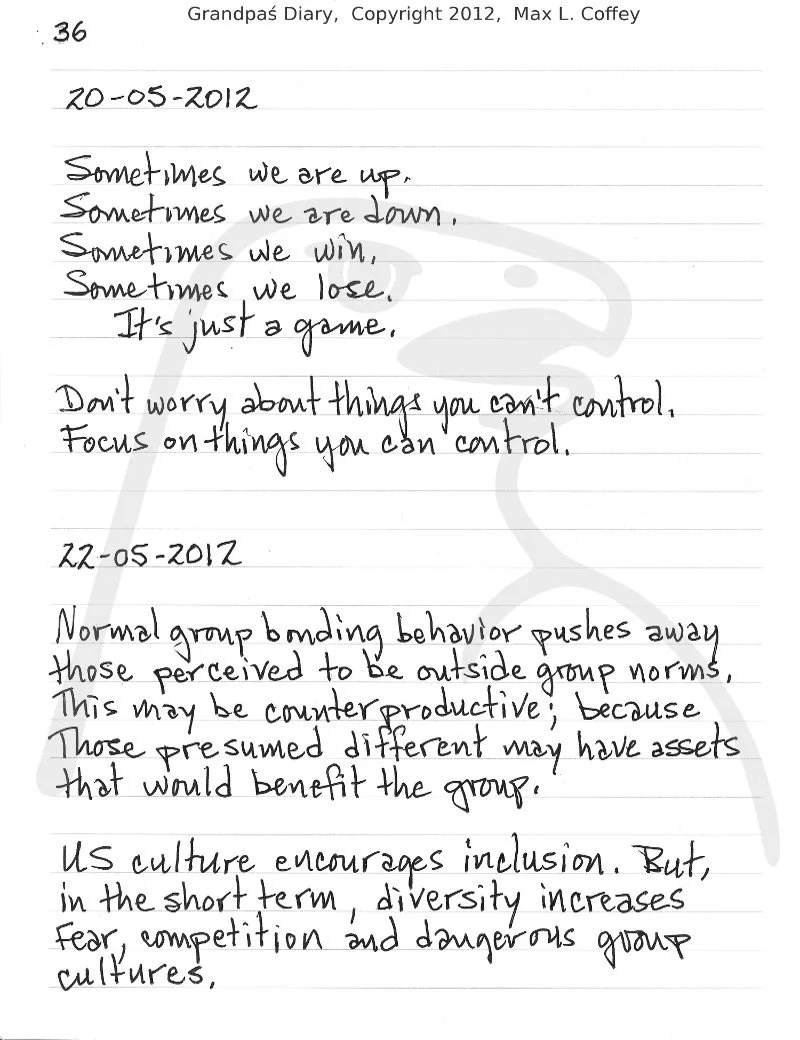 Grandpaś Diary, Copyright 2012, Max L. Coffey
36
20-05-2012
Sometimes we are up.
Sometimes we are down.
Sometimes we win,
Sometimes we lose.
It's just a game.
Don't worry about things you can't control.
Focus on things you can control.
22-05-2012
Normal group bonding behavior pushes away
those perceived to be outside group norms.
This may be counterproductive; because
Those presumed different may have assets
that would benefit the group.
US culture encourages inclusion. But,
in the short term, diversity increases
fear, competition and dangerous group
cultures.